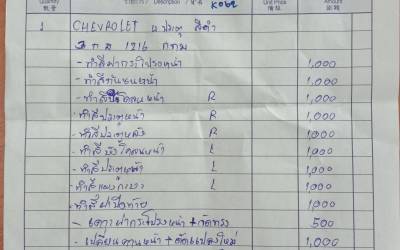 Quantity Description Unit Price Amount
數量
K062
1 CHEVROLET 4 ประตู สีดำ
1216 กทม
- ทำสีฝากระโปรงหน้า 1,000
- ทำสีกันชนหน้า 1,000
- ทำสีบังโคลนหน้า R 1,000
- ทำสีประตูหน้า R 1,000
- ทำสีประตูหลัง R 1,000
- ทำสีบังโคลนหน้า L 1,000
- ทำสีประตูหน้า L 1,000
- ทำสีแผงข้าง L 1,000
- ทำสีฝาปิดท้าย 1,000
- เคาะฝากระโปรงหน้า + ดัดทรง 500
- เปลี่ยนคานหน้า + ดัดแปลงใหม่ 1,000